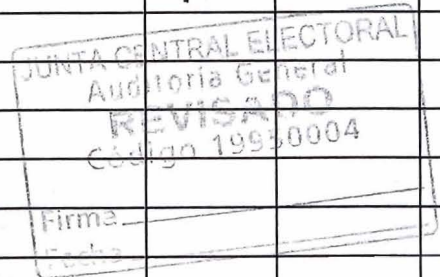 JUNTA CENTRAL ELECTORAL
Auditoría General
REVISADO
Código 19950004
Firma
Fecha